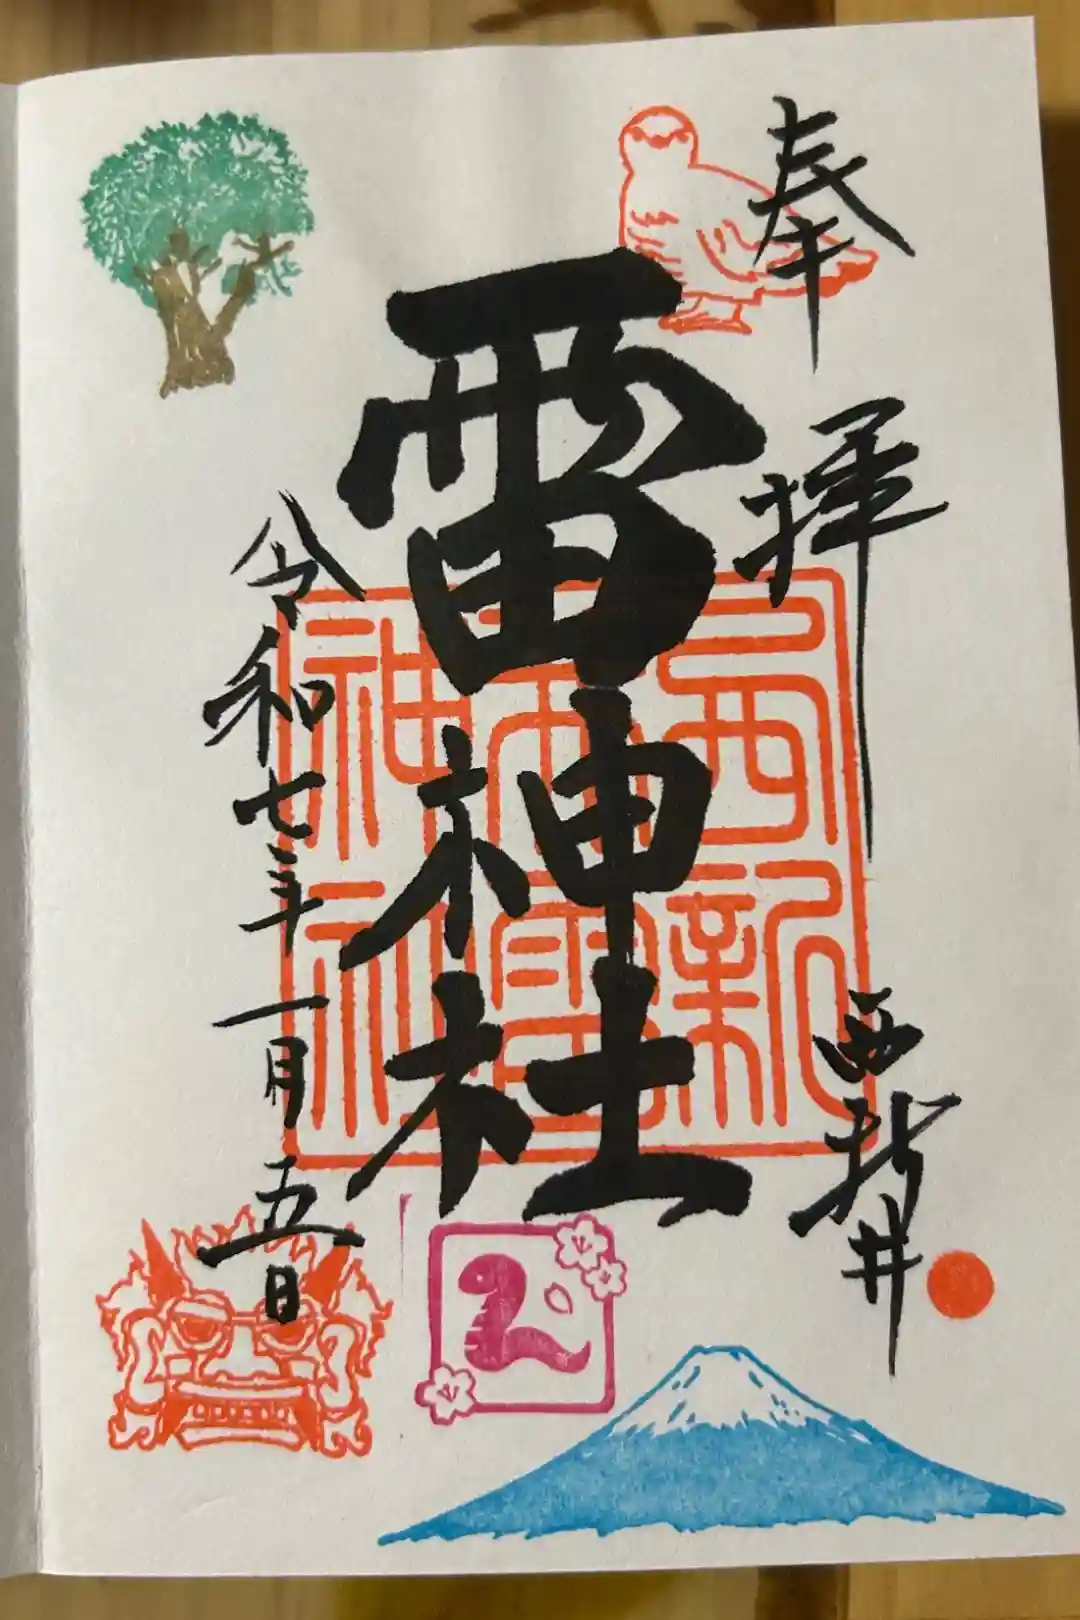 奉拝
西新井
雷神社
令和七年一月五日
西新
井雷
神社